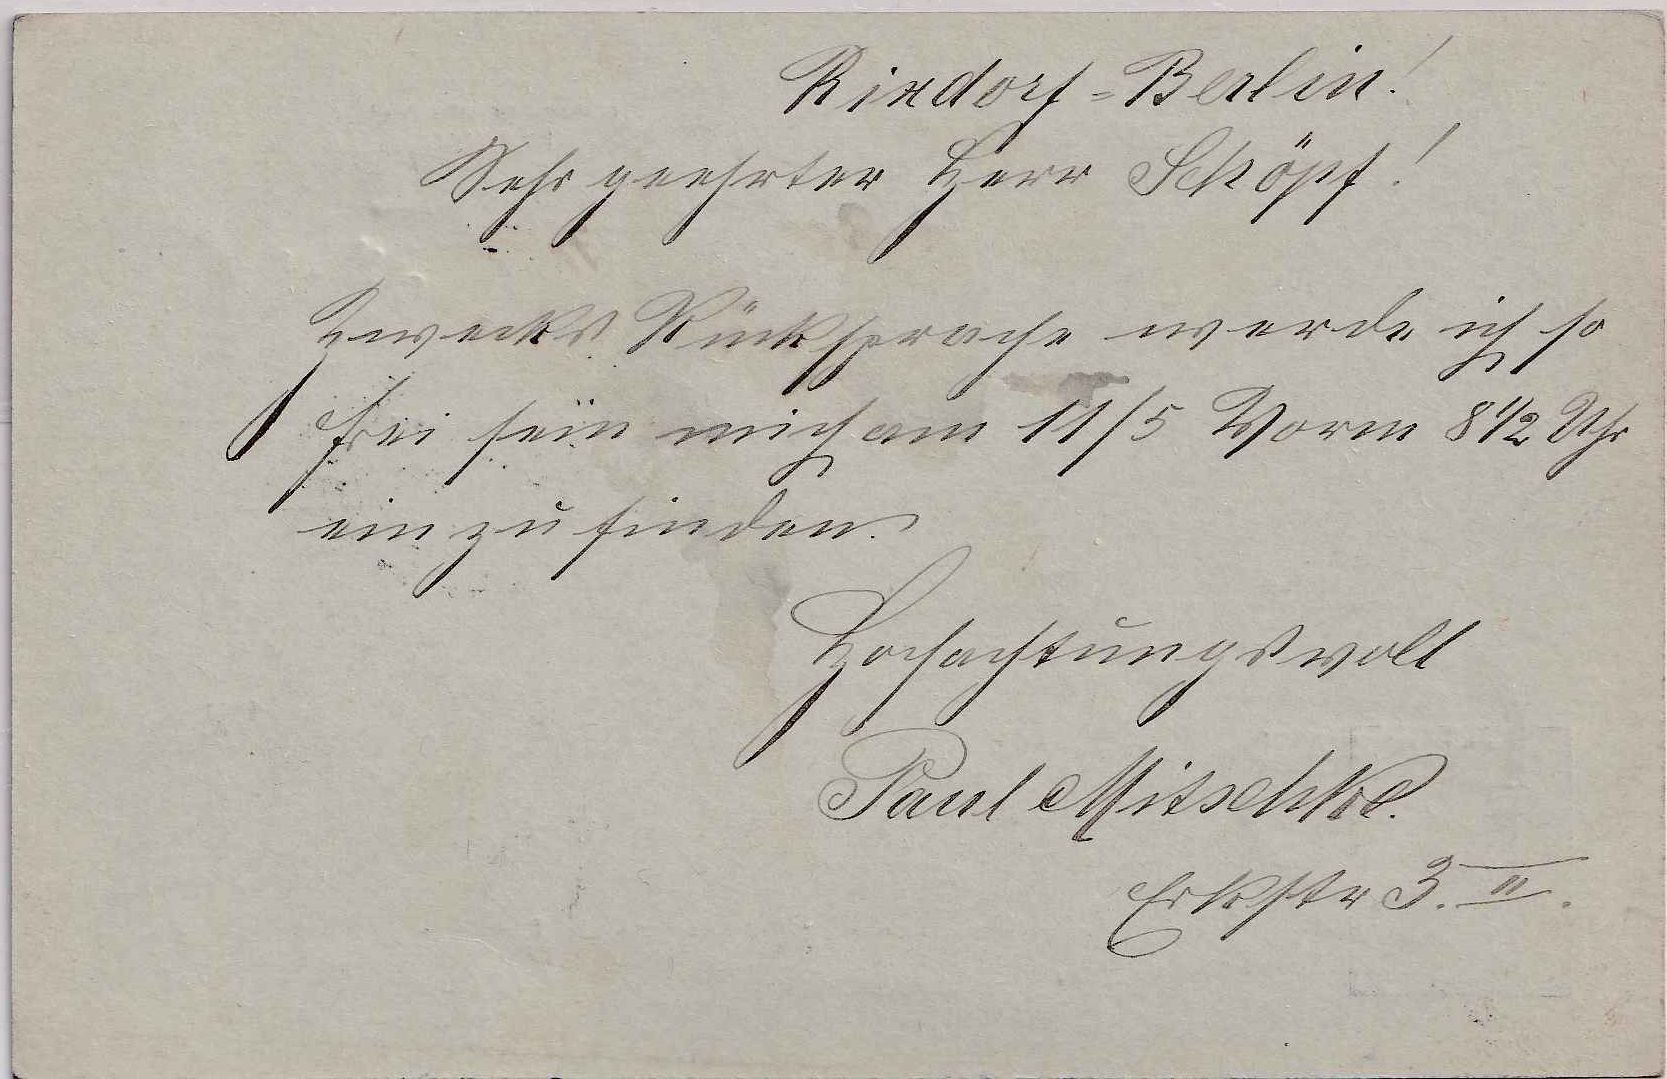 Rixdorf-Berlin!
Sehr geehrter Herr Schöpf!
Zwecks Rücksprache werde ich so
frei sein mich am 11/5 Vorm 8 1/2 Uhr
einzufinden.
Hochachtungsvoll
Paul Mitschke.
Erkstr 3. II.